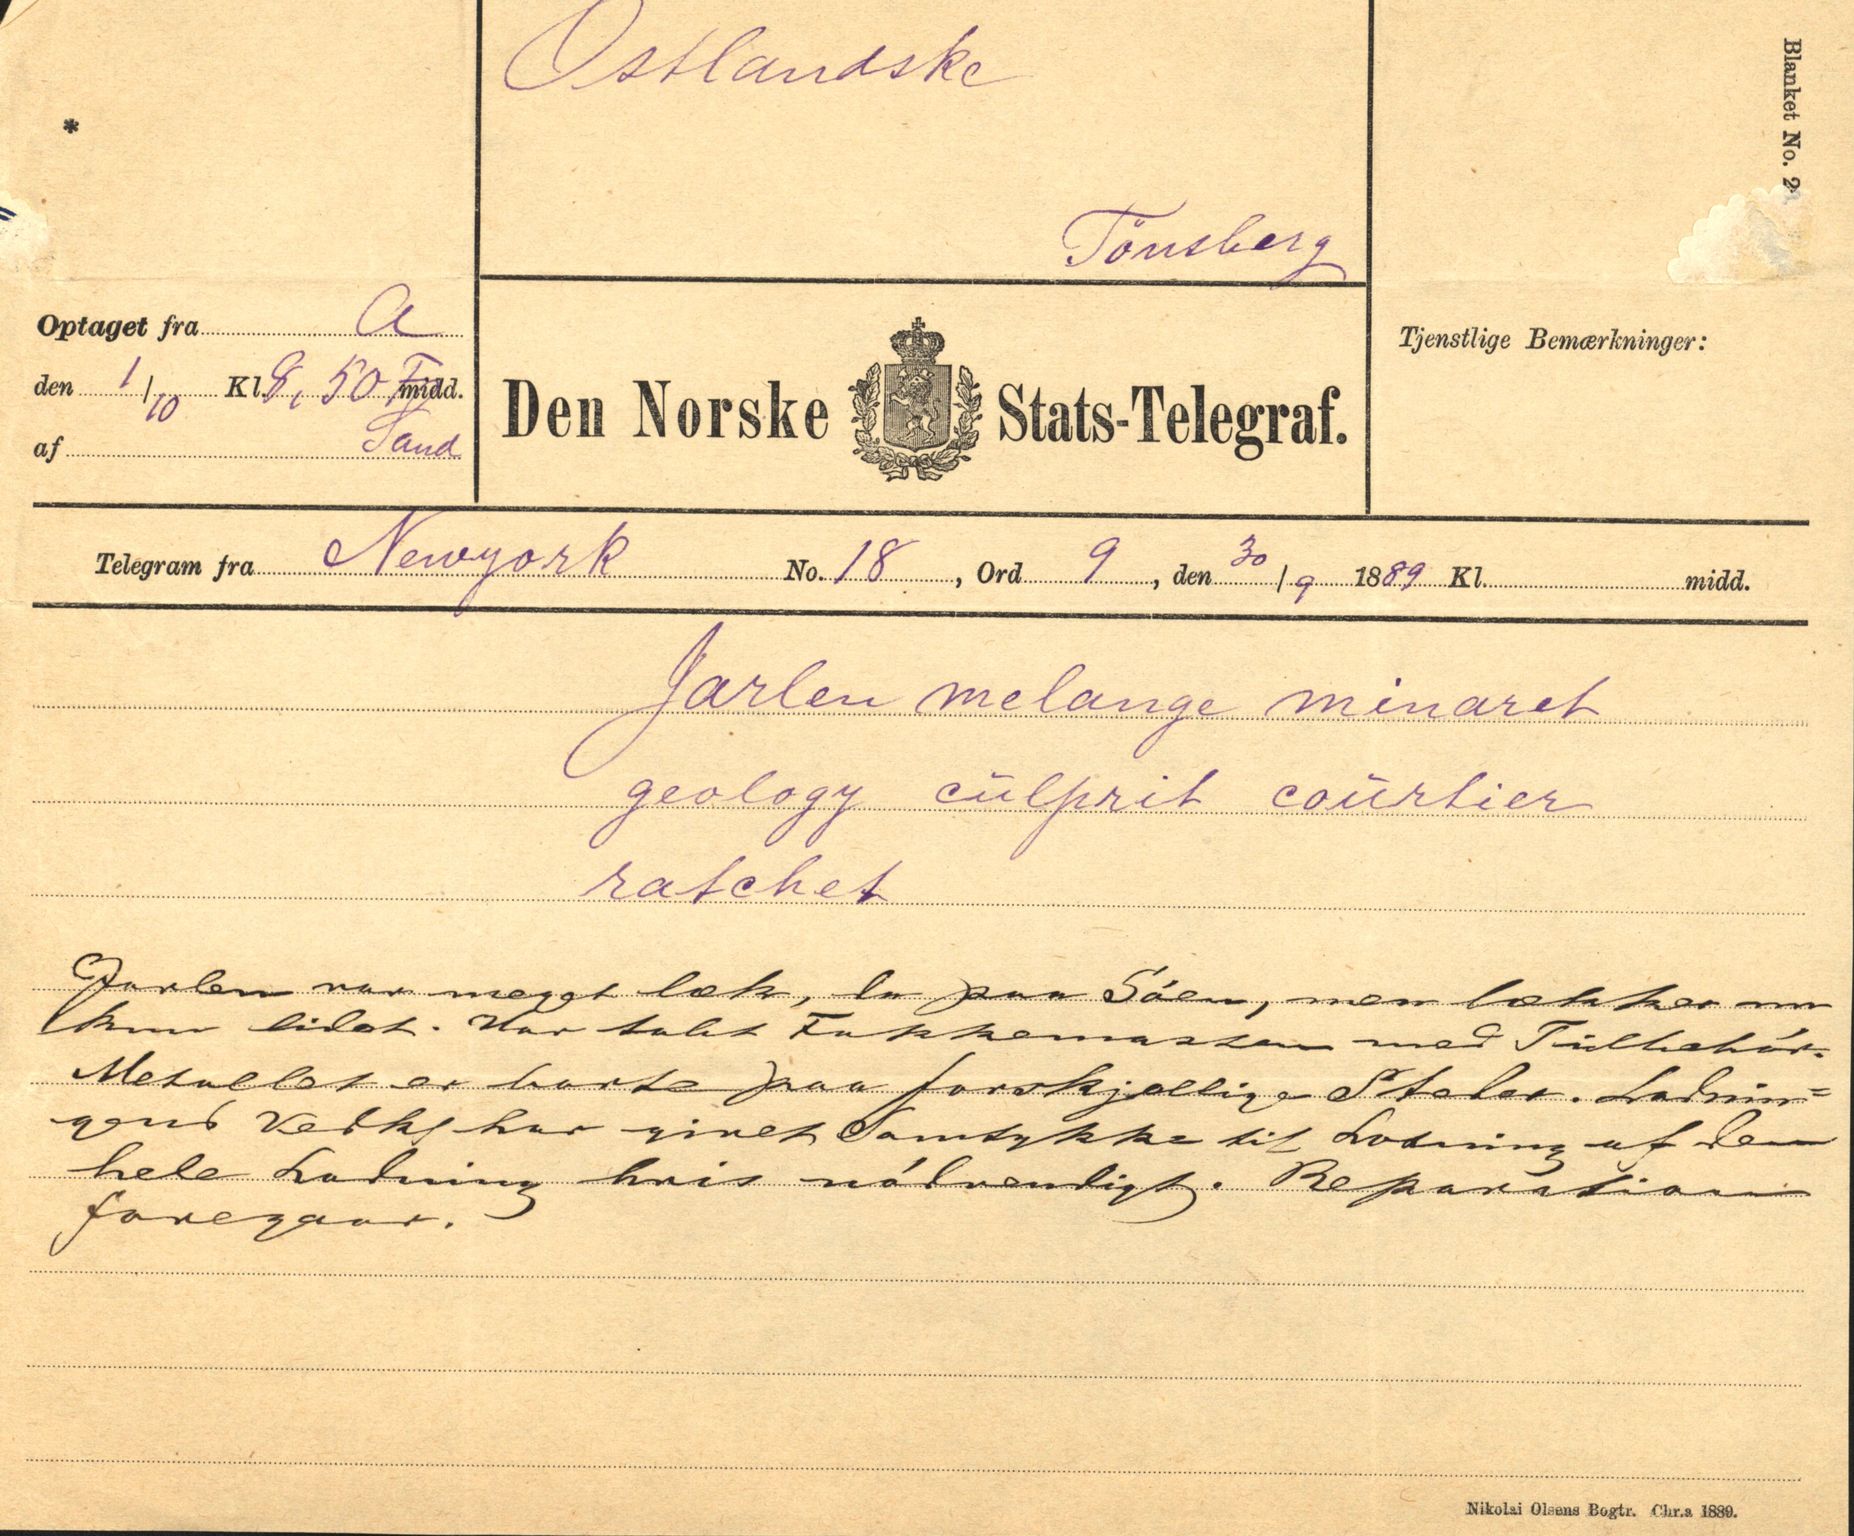 Ostlandske
Tönsberg
Blanket No. 2
*
Optaget fra A
den 1/10 Kl. 8,50 F midd.
af Sand
Den Norske Stats-Telegraf.
Tjenstlige Bemærkninger:
Telegram fra Newyork No. 18, Ord 9, den 30/9 1889 Kl. midd.
Jarlen melange minaret
geology cülprit coürtier
ratchet
Jarlen var meget læk, da paa Söen, men lækker nu
kun lidet. Har tabt Fokkemasten med Tilbehör.
Metallet er borte paa forskjellige Steder. Ladnin=
gens Vedk har givet Samtykke til Losning af den
hele Ladning hvis nödvendigt. Reparation
foregaar.
Nikolai Olsens Bogtr. Chr.a 1889.